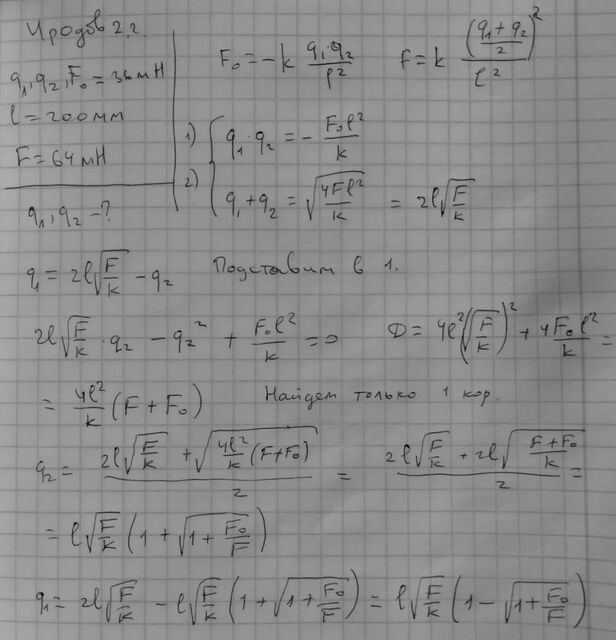 Иродов 2.2.
q₁, q₂, F₀ = 36 мН
l = 200 мм
F = 64 мН
q₁, q₂ - ?
F₀ = -k q₁·q₂ / l² F = k ((q₁ + q₂)/2)² / l²
1) q₁·q₂ = - F₀l²/k
2) q₁ + q₂ = √(4Fl²/k) = 2l√(F/k)
q₁ = 2l√(F/k) - q₂ Подставим в 1.
2l√(F/k) · q₂ - q₂² + F₀l²/k = 0 D = 4l²(√(F/k))² + 4F₀l²/k =
= 4l²/k (F + F₀) Найдем только 1 кор.
q₂ = (2l√(F/k) + √(4l²/k (F+F₀)))/2 = (2l√(F/k) + 2l√((F+F₀)/k))/2 =
= l√(F/k) (1 + √(1 + F₀/F))
q₁ = 2l√(F/k) - l√(F/k) (1 + √(1 + F₀/F)) = l√(F/k) (1 - √(1 + F₀/F))